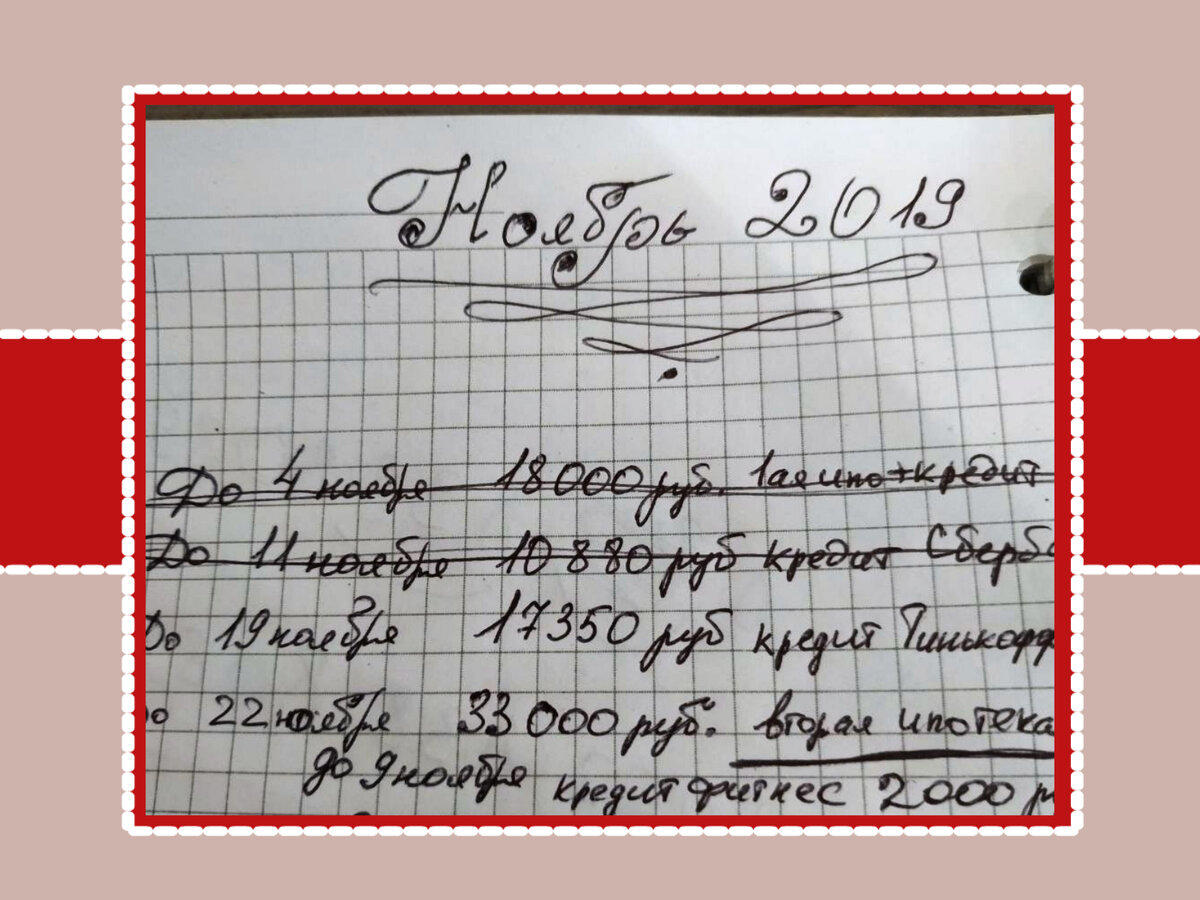 Ноябрь 2019
До 4 ноября 18000 руб. 1ая ипо+кредит
До 11 ноября 10880 руб кредит Сберб
До 19 ноября 17350 руб кредит Тинькофф
до 22 ноября 33000 руб. вторая ипотека
до 9 ноября кредит фитнес 2000 р